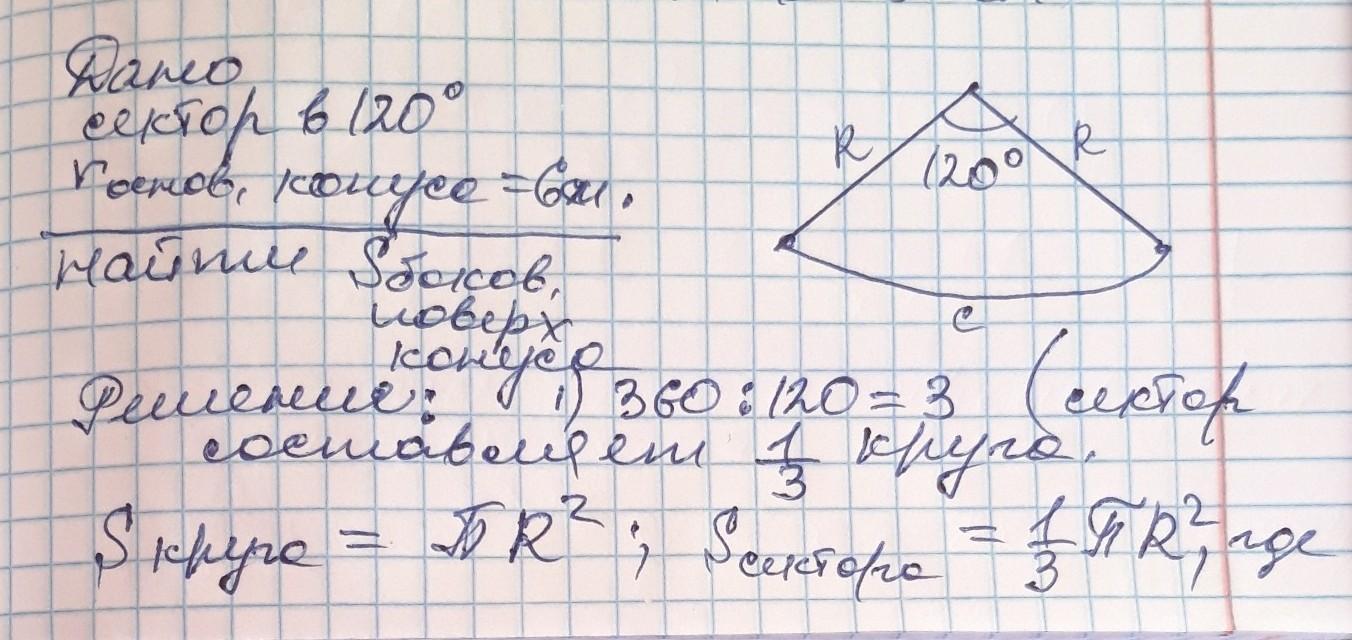 Дано
сектор в 120°
rоснов. конуса = 6см.
Найти Sбоков.
поверх
конуса
R
120°
R
C
Решение: 1) 360 : 120 = 3 (сектор
составляет 1/3 круга.
Sкруга = πR²; Sсектора = 1/3 πR², где